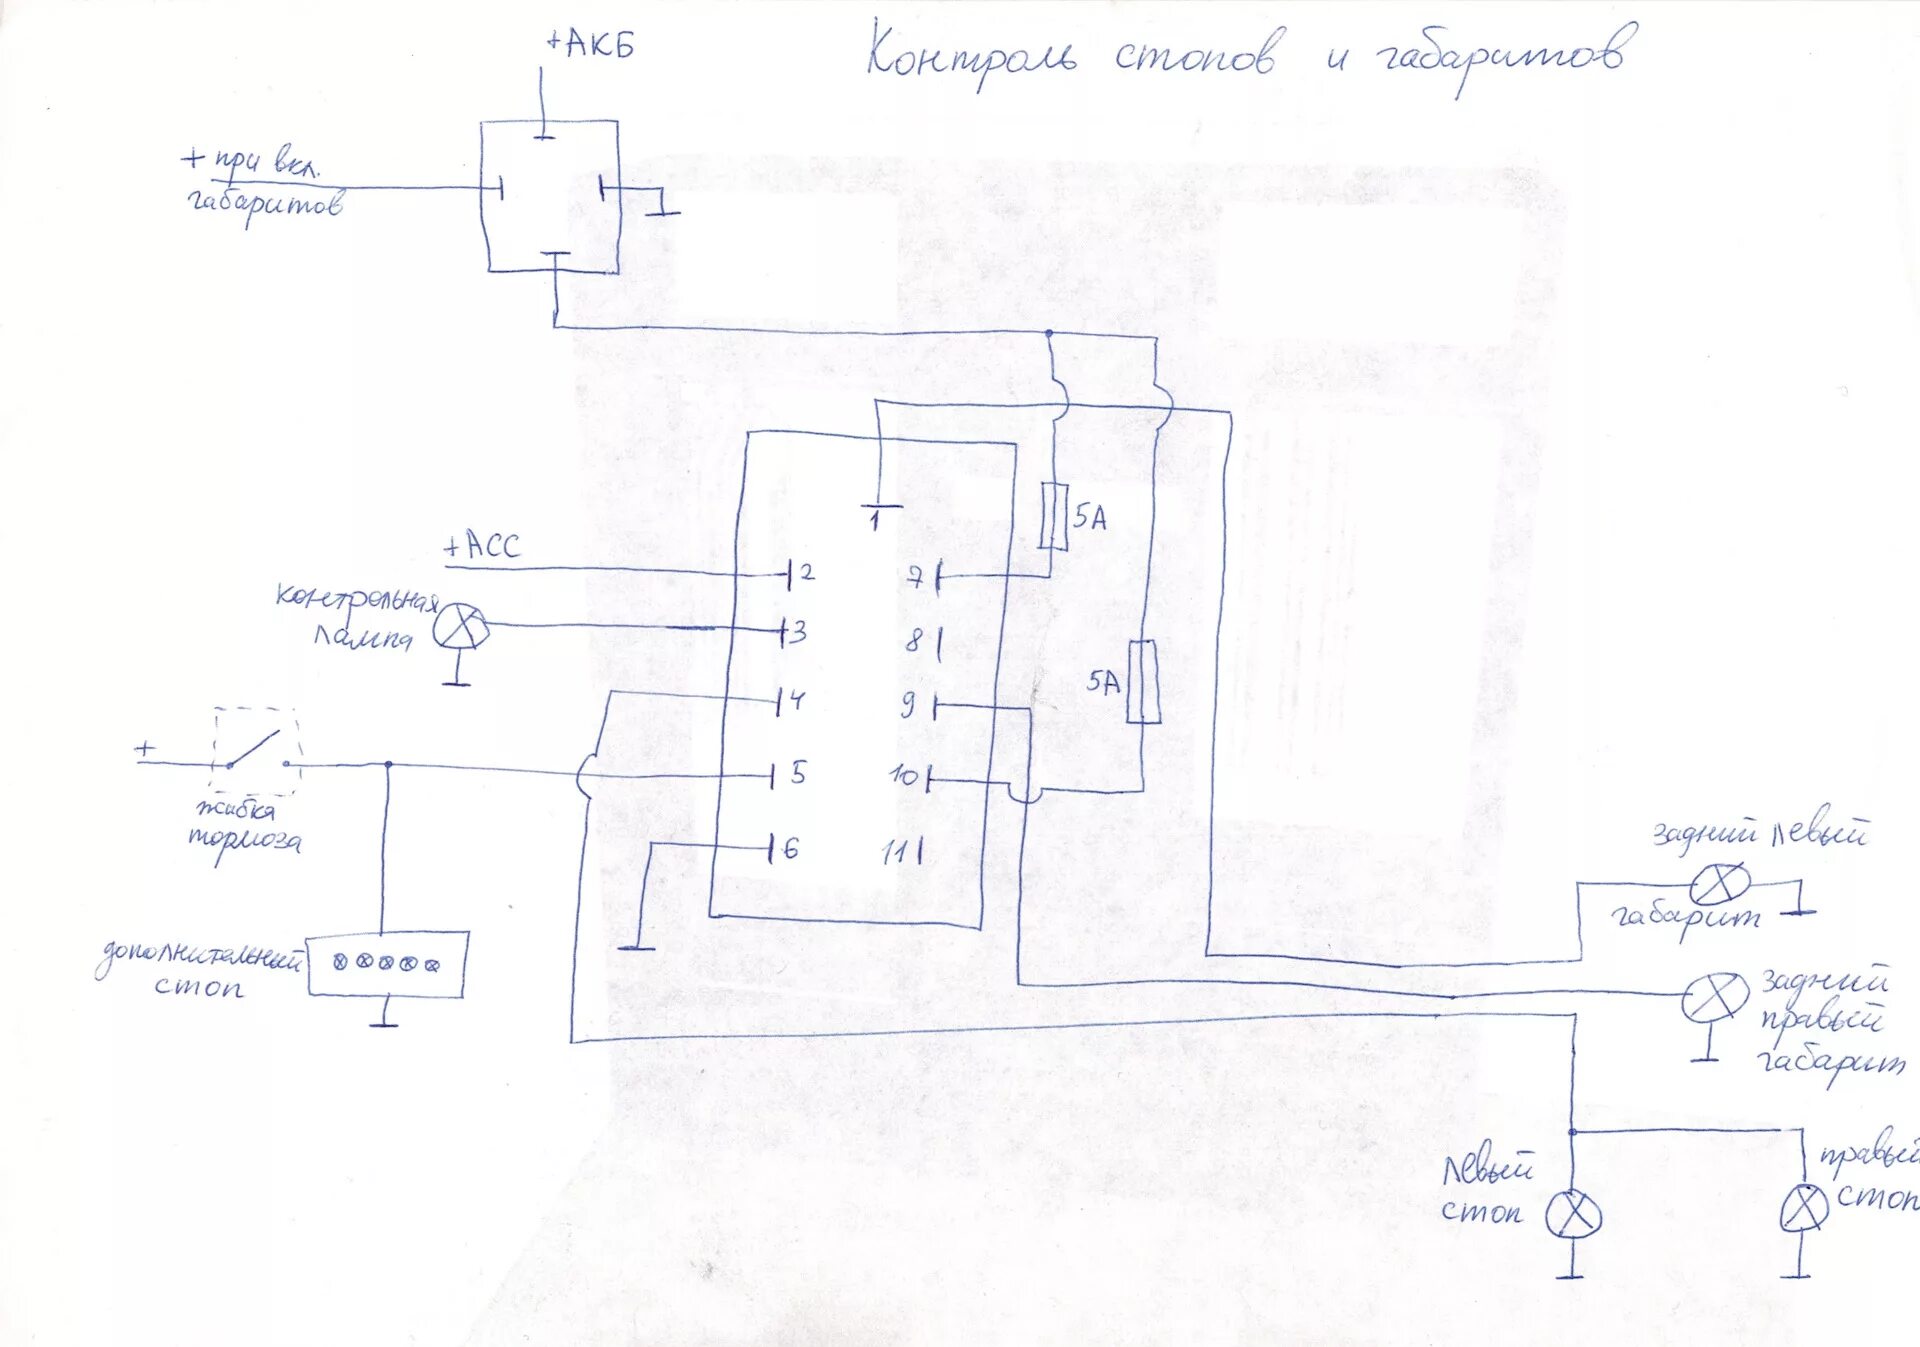 Контроль стопов и габаритов
+АКБ
+ при вкл.
габаритов
1
5А
+АСС
2
7
контрольная
лампа
3
8
4
9
5А
+
5
10
тормоза
6
11
дополнительный
стоп
задний левый
габарит
задний
правый
габарит
левый
стоп
правый
стоп